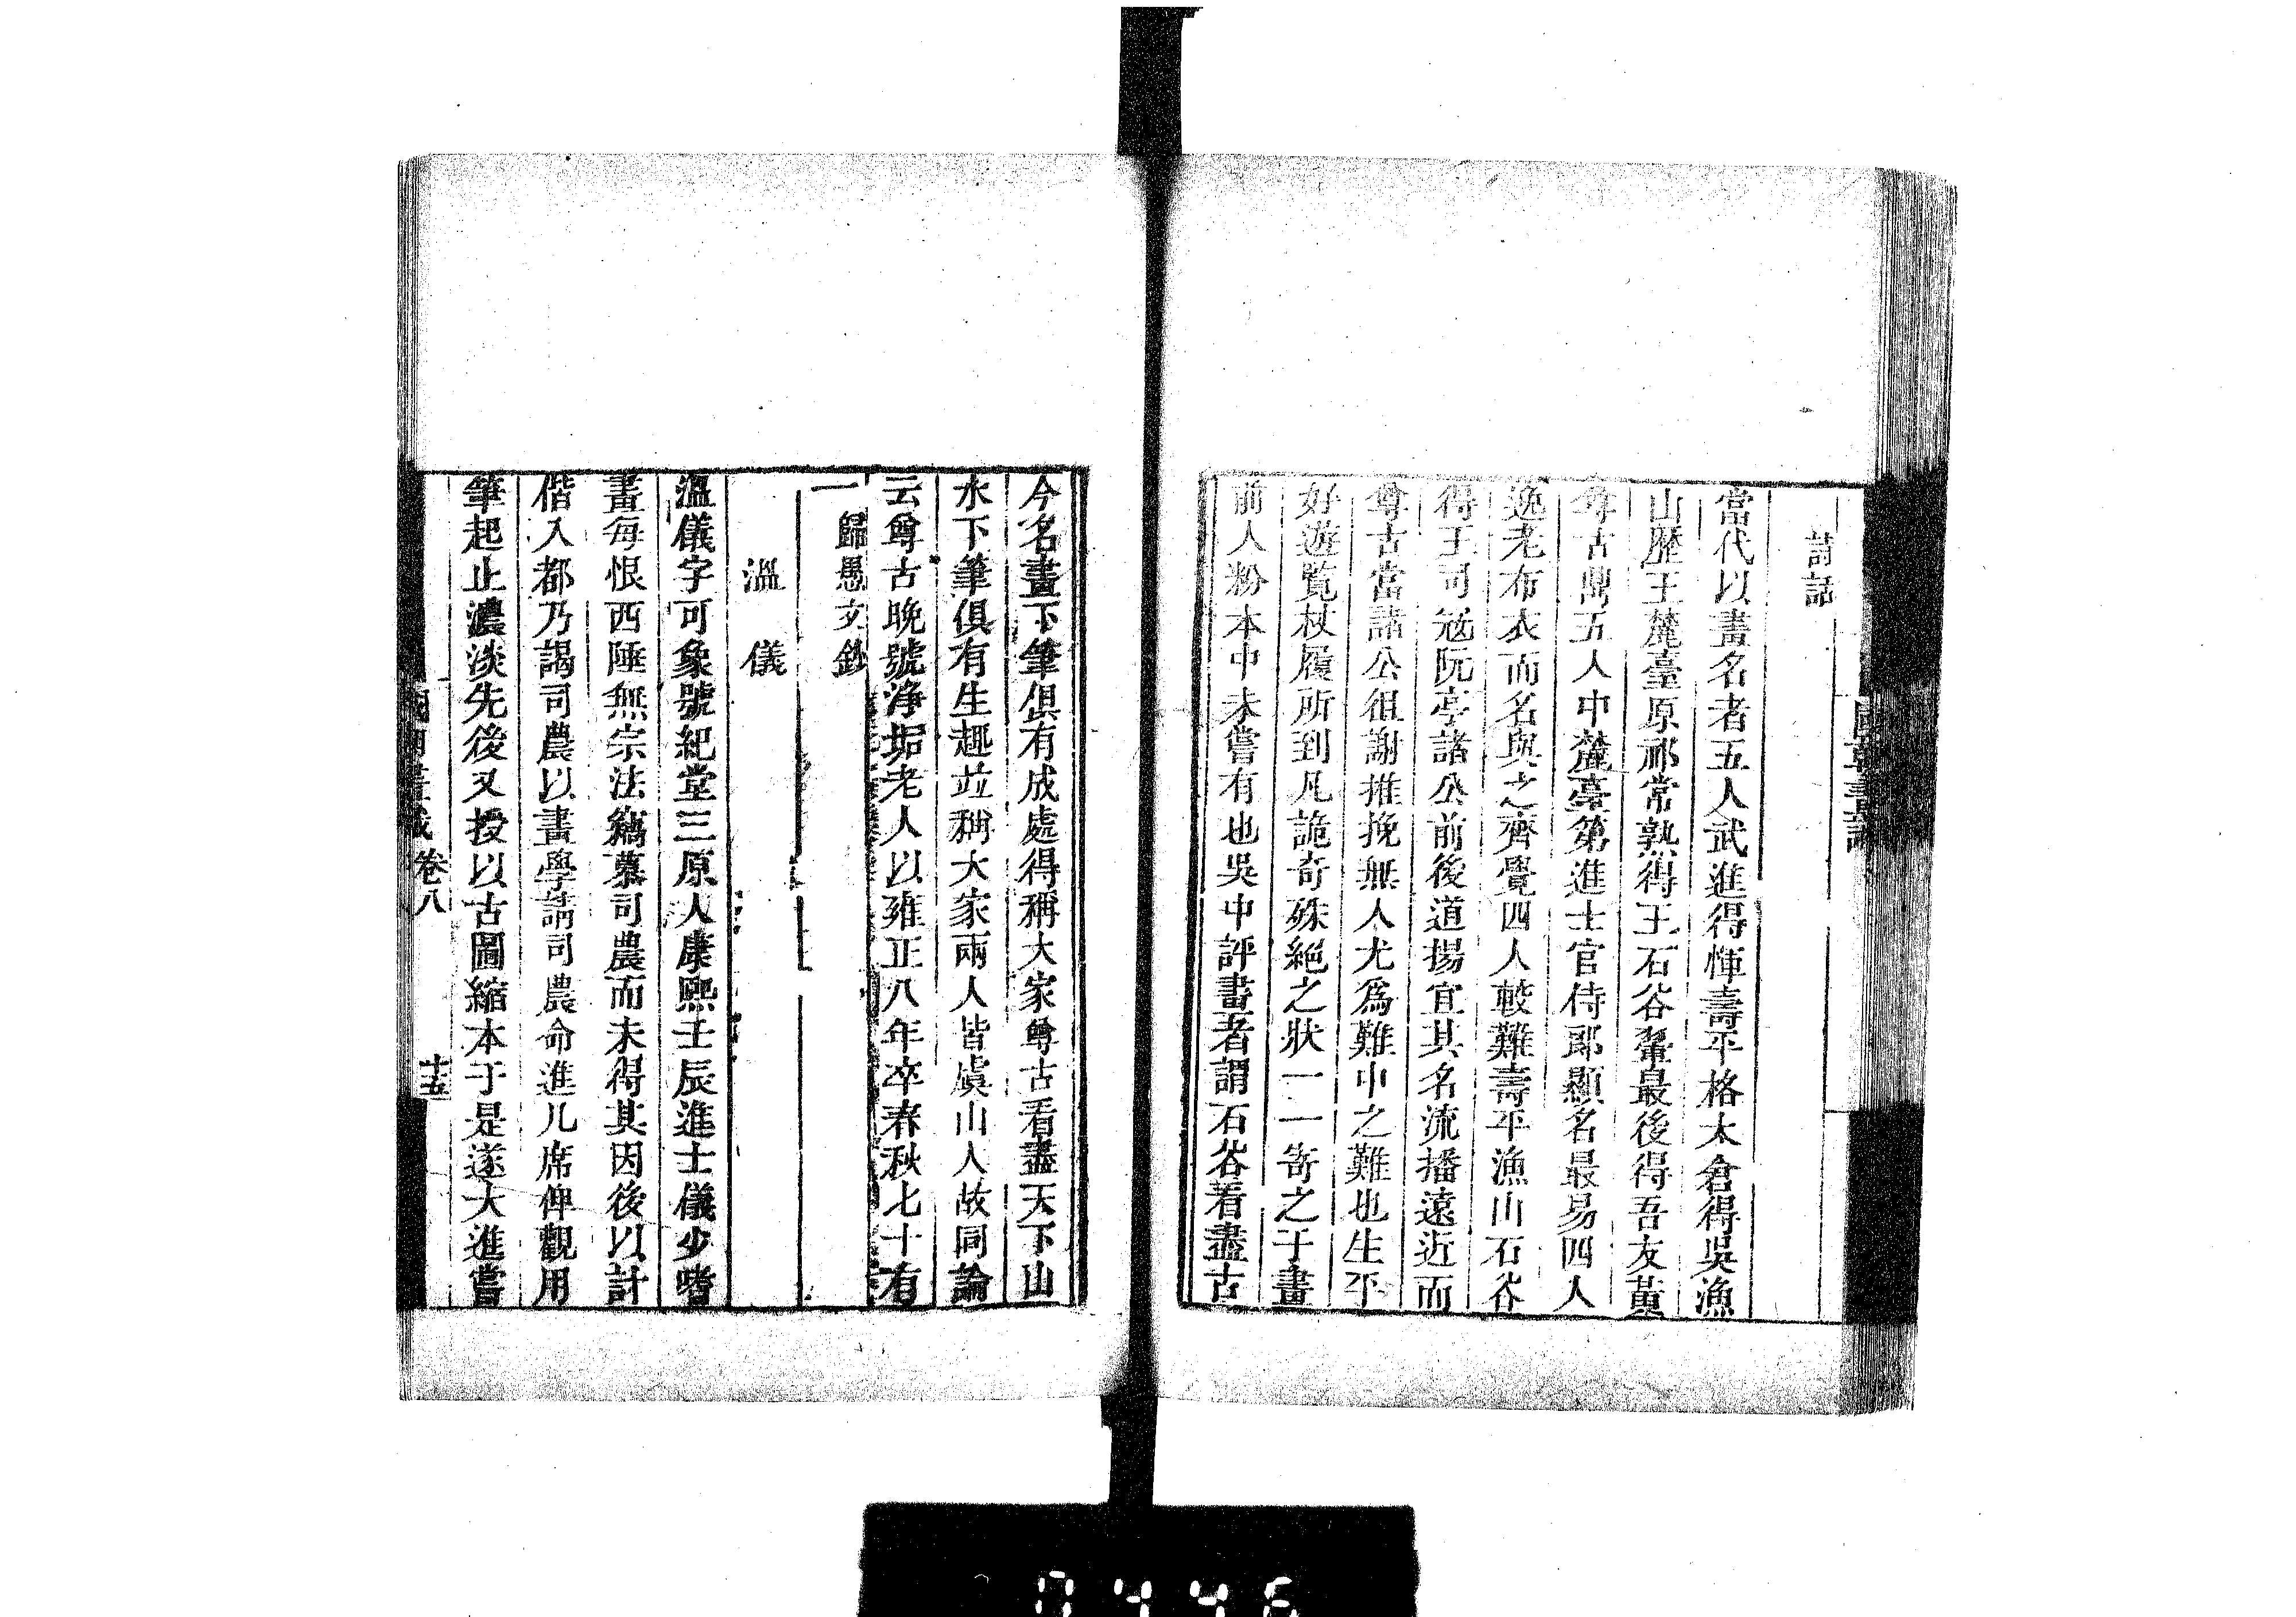 詩話
當代以畫名者五人武進得惲壽平格太倉得吳漁
山歷王麓臺原祁常熟得王石谷翬最後得吾友黃
尊古鼎五人中麓臺第進士官侍郎顯名最易四人
逸老布衣而名與之齊覺四人較難壽平漁山石谷
得王司寇阮亭諸公前後道揚宜其名流播遠近而
尊古當諸公徂謝推挽無人尤爲難中之難也生平
好遊覧杖履所到凡詭奇殊絕之狀一一寄之于畫
前人粉本中未嘗有也吳中評畫者謂石谷看盡古
今名畫下筆俱有成處得稱大家尊古看盡天下山
水下筆俱有生趣竝稱大家兩人皆虞山人故同論
云尊古晩號淨垢老人以雍正八年卒春秋七十有
一歸愚文鈔
溫儀
溫儀字可象號紀堂三原人康熙壬辰進士儀少嗜
畫每恨西陲無宗法竊慕司農而未得其因後以計
偕入都乃謁司農以畫學請司農命進几席俾觀用
筆起止濃淡先後又授以古圖縮本于是遂大進嘗
卷八
十五
0446